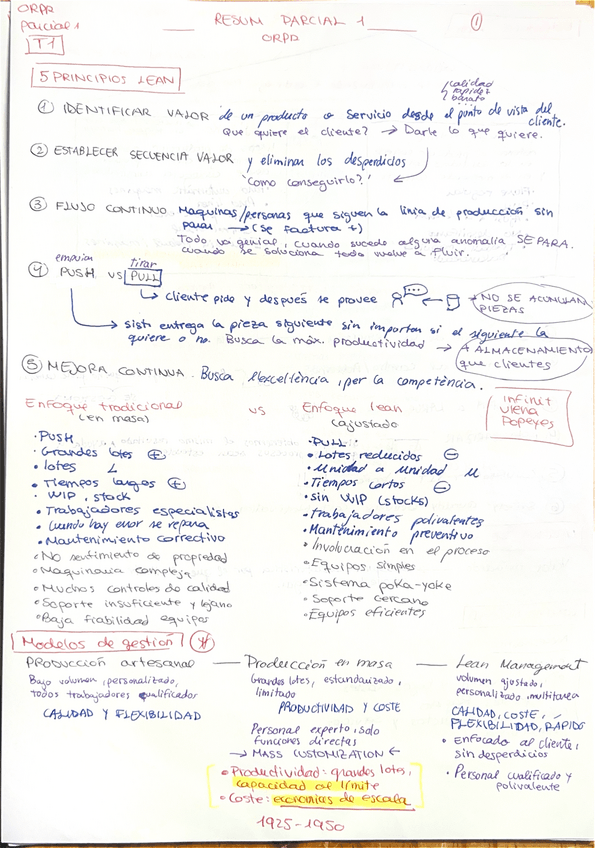 ORPD
parcial 1
T1
RESUM PARCIAL 1
ORPD
1
5 PRINCIPIOS LEAN
calidad
rapidez
barato
① IDENTIFICAR VALOR de un producto o servicio desde el punto de vista del cliente.
Que quiere el cliente? → Darle lo que quiere.
② ESTABLECER SECUENCIA VALOR y eliminar los desperdicios
"Como conseguirlo?"
③ FLUJO CONTINUO. Maquinas/personas que siguen la linia de producción sin
parar → (se factura +)
Todo va genial, cuando sucede alguna anomalia SE PARA.
cuando se soluciona todo vuelve a fluir.
empujar tirar
④ PUSH VS PULL
↳ cliente pide y después se provee ← NO SE ACUMULAN
PIEZAS
→ sist. entrega la pieza siguiente sin importar si el siguiente la
quiere o no. Busca la máx. productividad → A ALMACENAMIENTO
que clientes
⑤ MEJORA CONTINUA. Busca l'excel·lència, per la competència.
Enfoque tradicional vs Enfoque lean
(en masa) (ajustado)
infinit
viena
Popeyes
· PUSH
· Grandes lotes +
· lotes L
· Tiempos largos +
· WIP, stock
· Trabajadores especialistas
· Cuando hay error se repara
· Mantenimiento correctivo
· No sentimiento de propiedad
· Maquinaria compleja
· Muchos controles de calidad
· Soporte insuficiente y lejano
· Baja fiabilidad equipos
· PULL
· Lotes reducidos −
· Unidad a unidad u
· Tiempos cortos −
· sin WIP (stocks)
· trabajadores polivalentes
· Mantenimiento preventivo
· Involucración en el proceso
· Equipos simples
· Sistema poka-yoke
· Soporte cercano
· Equipos eficientes
Modelos de gestión
PRODUCCIÓN artesanal — Producción en masa — Lean Management
Bajo volumen, personalizado,
todos trabajadores qualificados
CALIDAD Y FLEXIBILIDAD
Grandes lotes, estandarizado,
limitado
PRODUCTIVIDAD Y COSTE
Personal experto, solo
funciones directas
→ MASS CUSTOMIZATION ←
• Productividad: grandes lotes,
capacidad al límite
• Coste: economías de escala
1925-1950
volumen ajustado,
personalizado, multitarea
CALIDAD, COSTE,
FLEXIBILIDAD, RAPIDO
• Enfocado al cliente,
sin desperdicios
• Personal cualificado y
polivalente